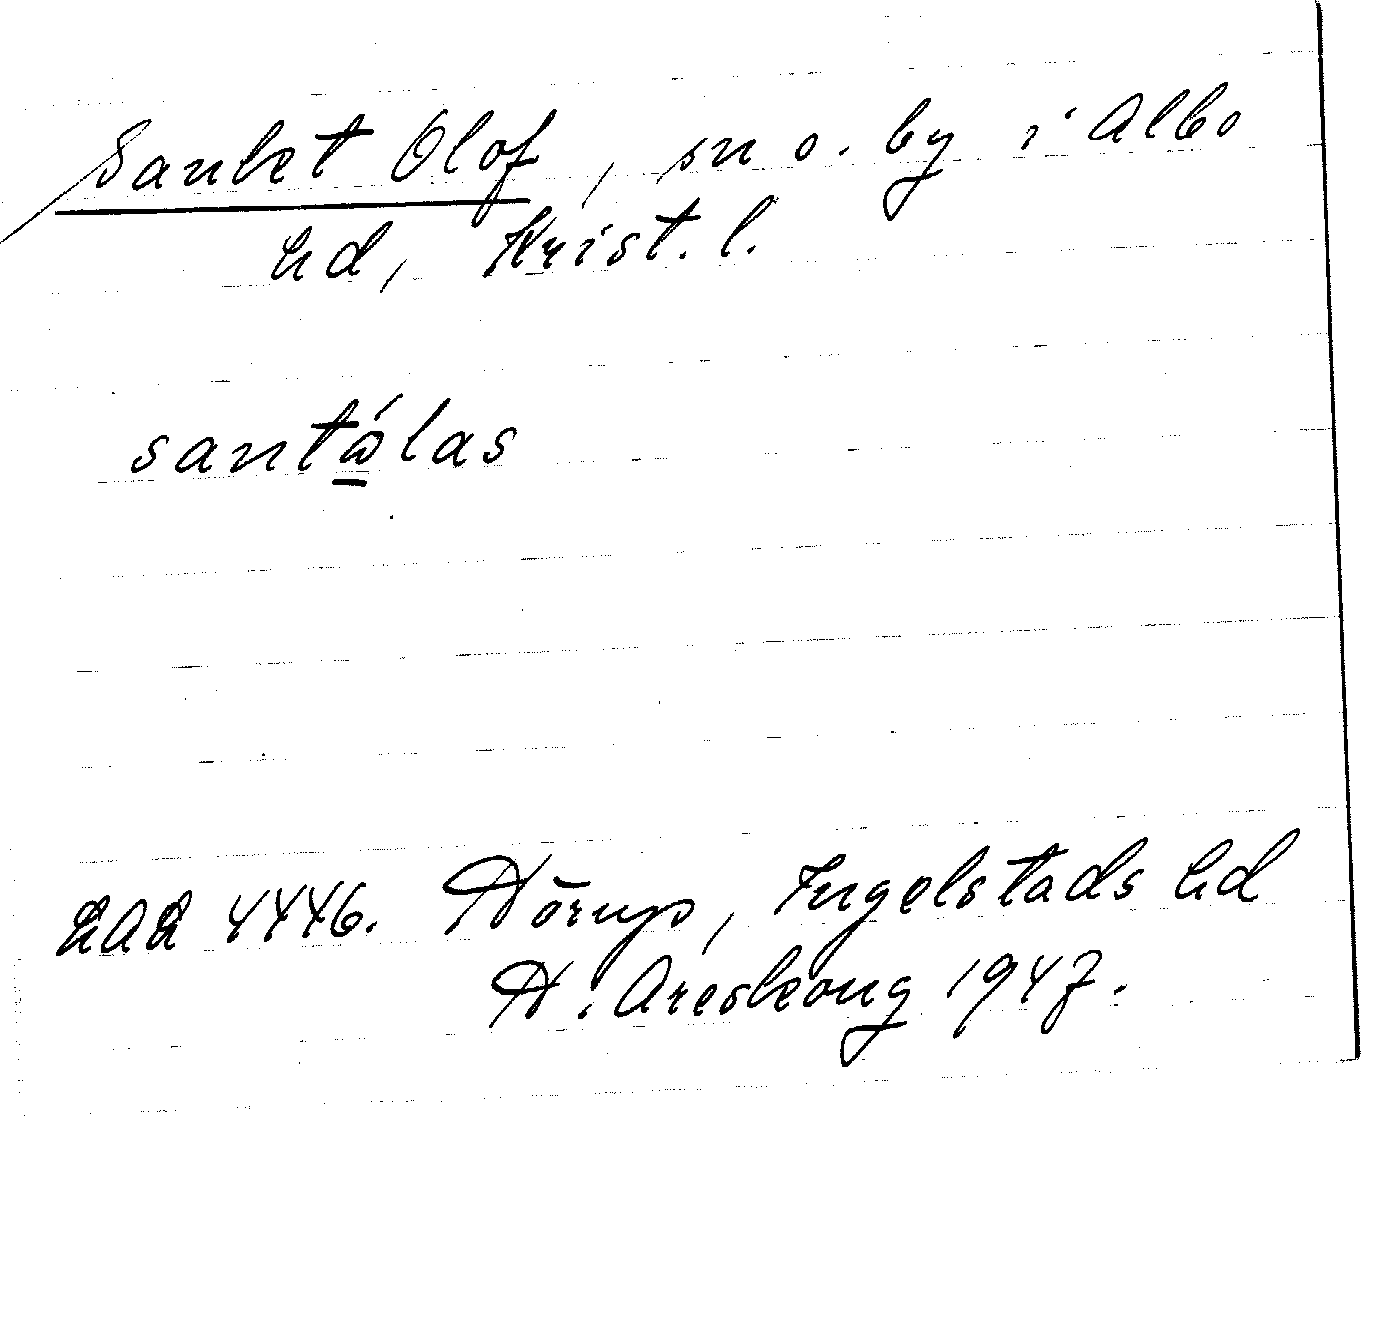 Sankt Olof, sn o. by i Albo
hd, Krist. l.
santålas
4446. Hörup, Ingelstads hd
H. Areskoug 1947.